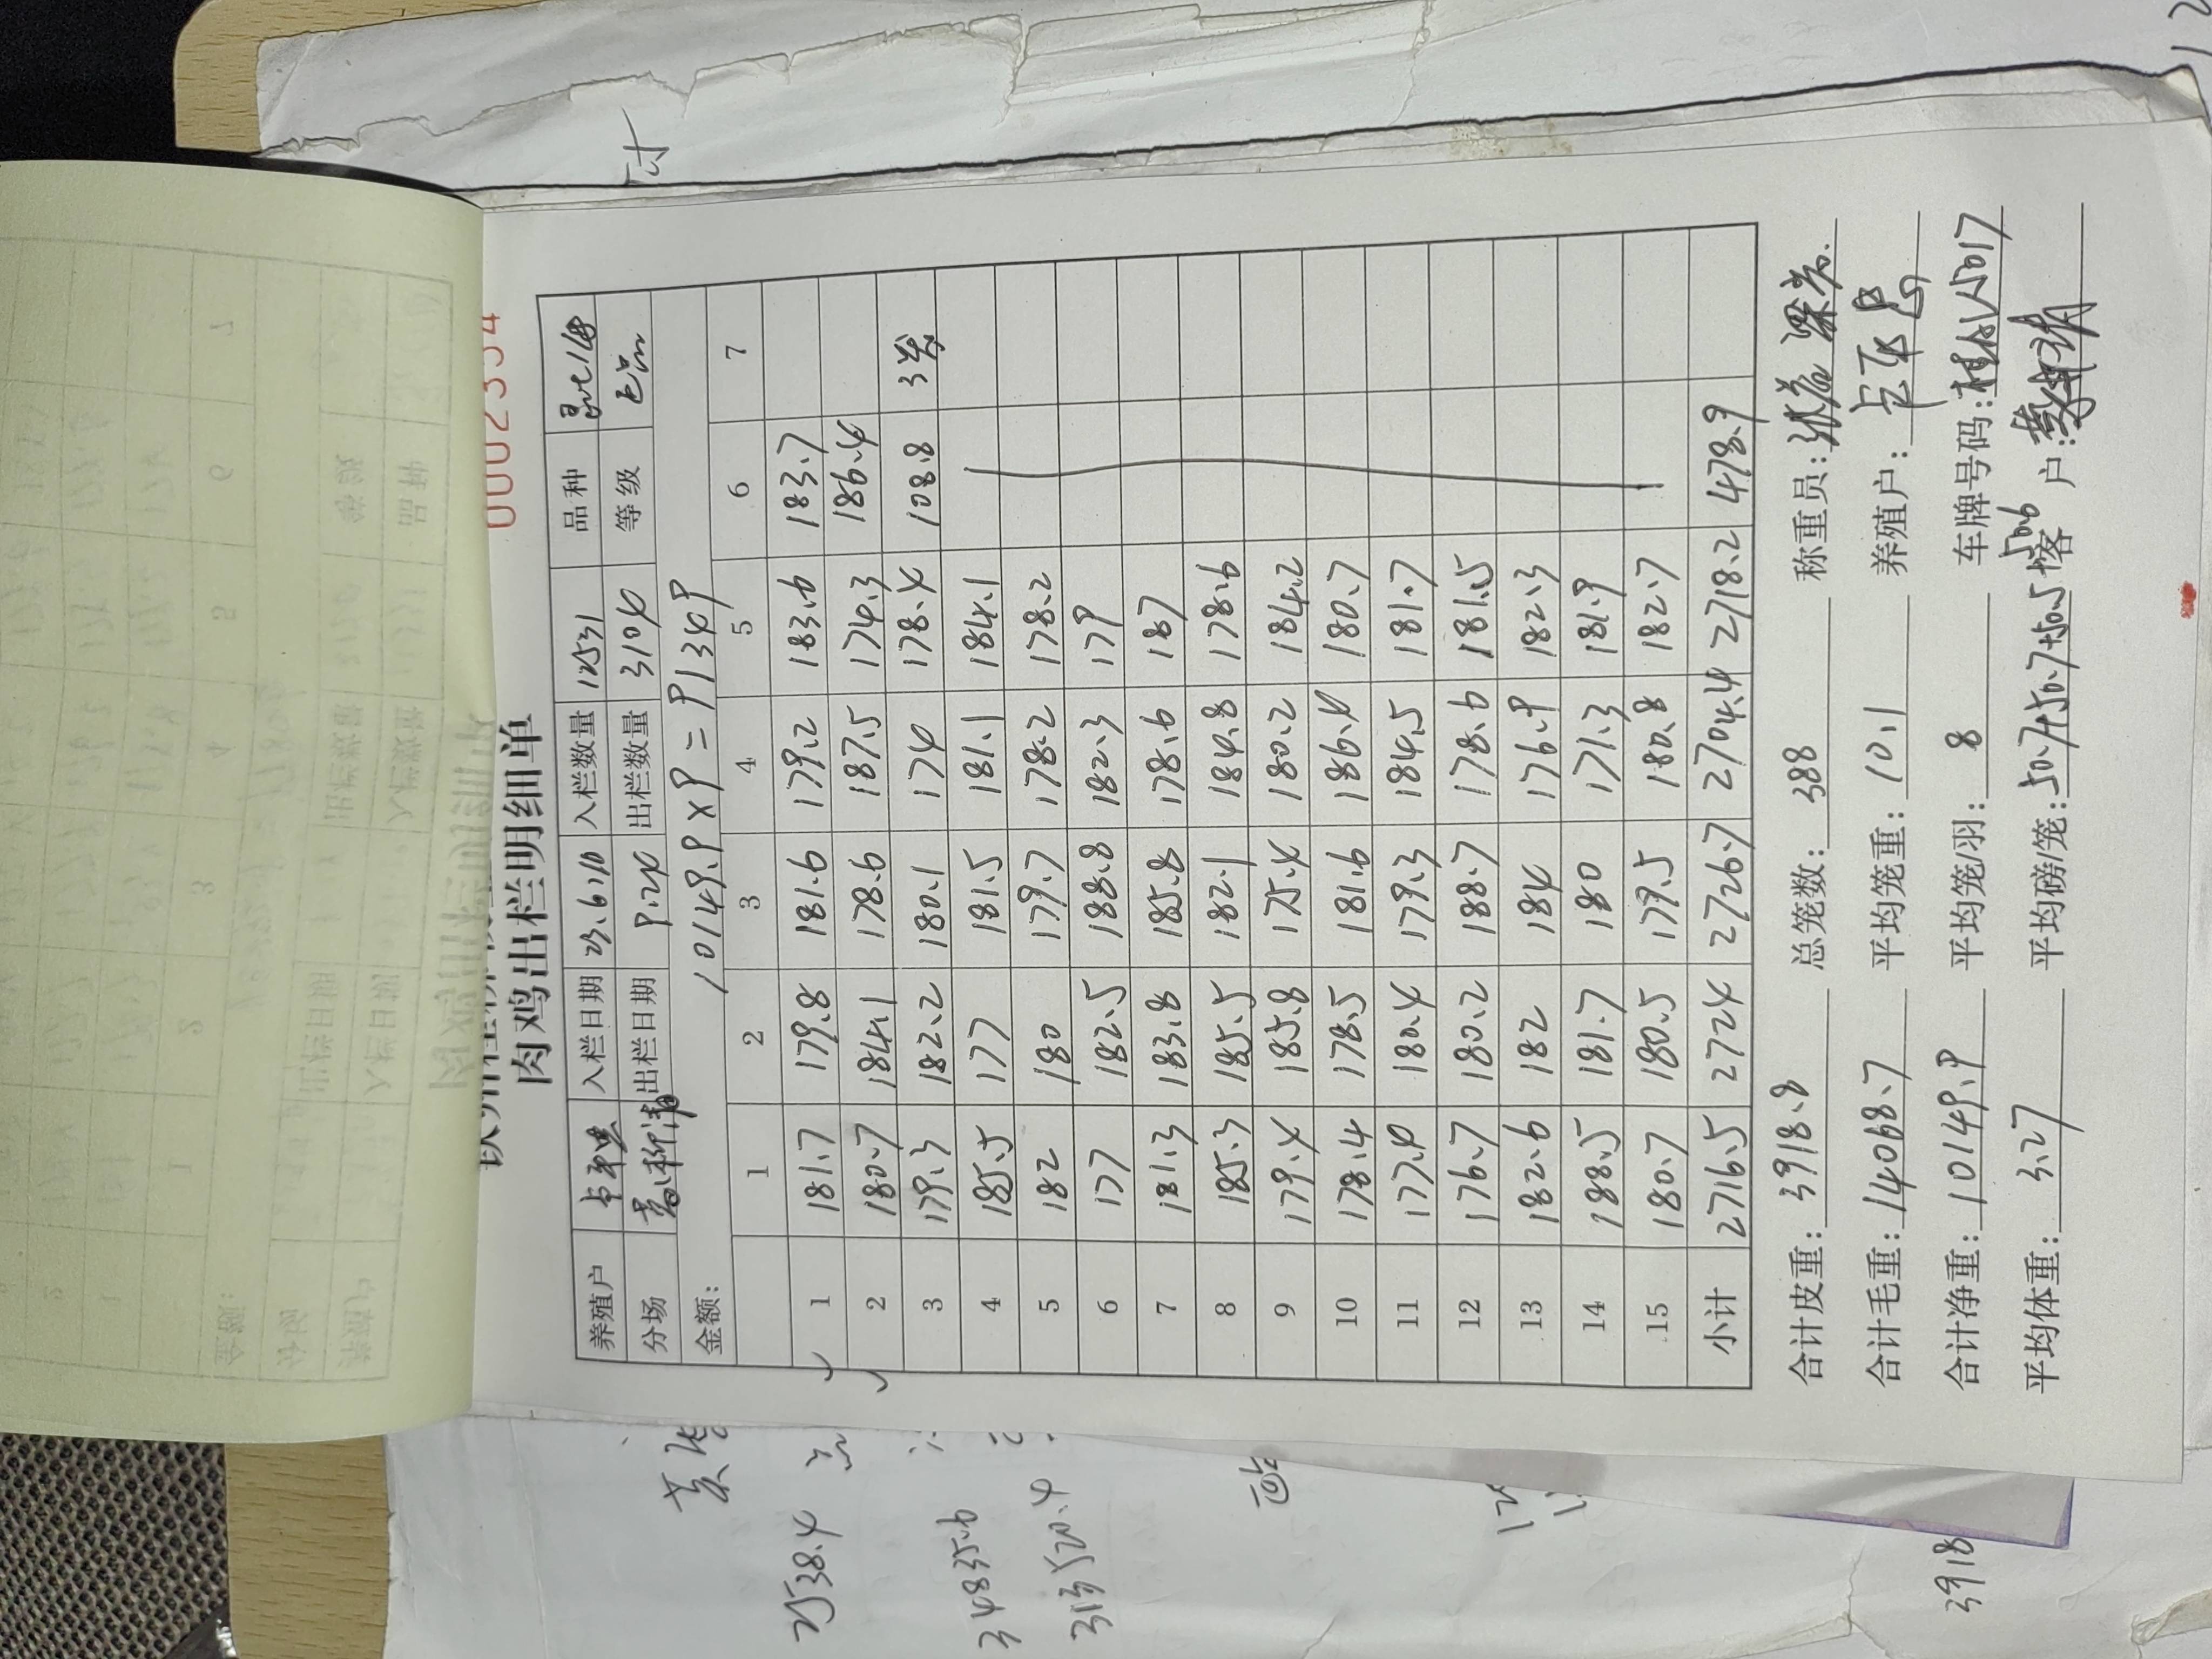 0002334
肉鸡出栏明细单
养殖户 入栏日期 23.6.10 入栏数量 12531 品种
分场 出栏日期 9.24 出栏数量 3104 等级
金额: 10149.9×9=91349
1 2 3 4 5 6 7
1 181.7 179.8 181.6 179.2 183.6 183.7
2 180.7 184.1 178.6 187.5 174.3 186.4
3 179.3 182.2 180.1 174 178.4 108.8 3类
4 185.5 177 181.5 181.1 184.1
5 182 180 179.7 178.2 178.2
6 177 182.5 188.8 182.3 179
7 181.3 183.8 185.8 178.6 187
8 185.3 185.5 182.1 184.8 178.6
9 179.4 185.8 175.4 180.2 184.2
10 178.4 178.5 181.6 186.4 180.7
11 177.4 180.4 179.3 184.5 181.7
12 176.7 180.2 188.7 178.6 181.5
13 182.6 182 184 176.9 182.3
14 188.5 181.7 180 171.3 181.9
15 180.7 180.5 179.5 180.8 182.7
小计 2716.5 2724 2726.7 2704.4 2718.2 478.9
合计皮重: 3918.8 总笼数: 388 称重员:
合计毛重: 14068.7 平均笼重: 10.1 养殖户:
合计净重: 10149.9 平均笼/羽: 8 车牌号码:
平均体重: 3.27 平均磅/笼: 50.7+50.7+50.5 客户:
2538.4
34835.6
313520.4
3918